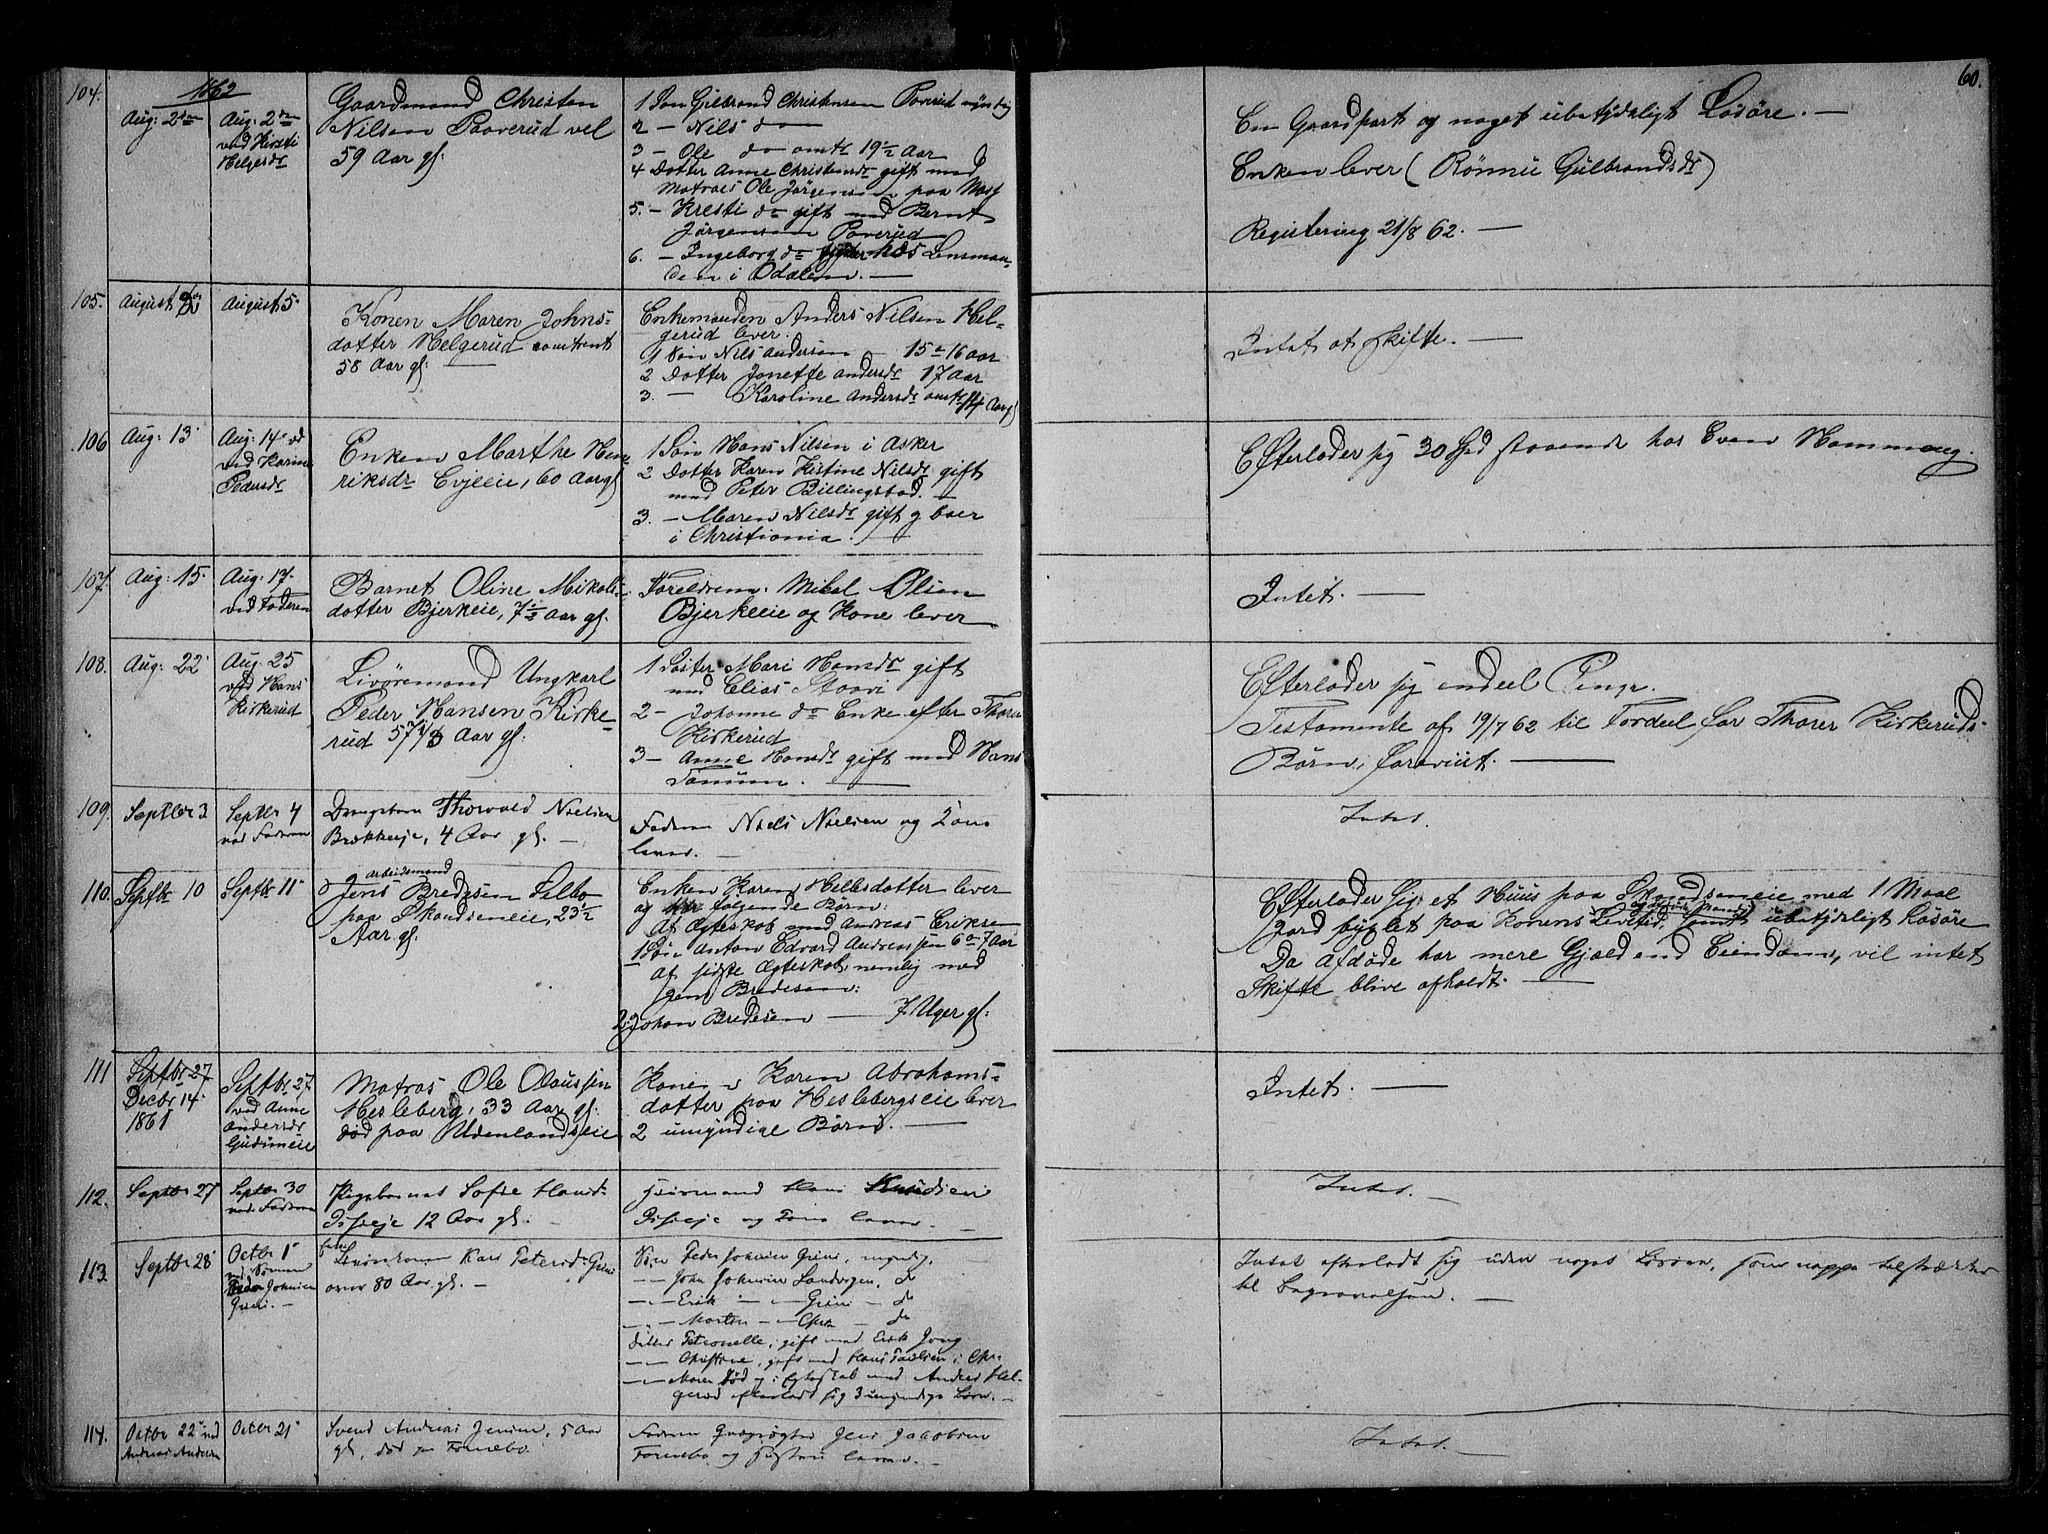 60.
104.
1862
Aug: 2den
Aug: 2den
ved Kirsti
Helgersdr
Gaardmand Christen
Nilsen Paaverud vel
59 Aar gl.
1 Søn Gulbrand Christensen Poverud myndig
2 — Nils do
3 — Ole do omtr 19½ Aar
4 Dotter Anne Christensdr gift med
Matroes Ole Jørgensen paa
5. — Kresti do gift med Bernt
Jørgensen Poverud
6. — Ingeborg do hos Lensman-
den i Odalen. —
En Gaardpart og noget ubetydeligt Løsøre. —
Enken lever (Rønnu Gulbrandsdr)
Registering 21/8 62. —
105.
August
August 5
Konen Maren Johns-
dotter Helgerud omtrent
58 Aar gl. —
Enkemanden Anders Nilsen Hel-
gerud lever.
1 Søn Nils Andersen — 15 a 16 Aar
2 Dotter Jonette Andersdr 17 Aar
3. — Karoline Andersdr omtr 14 Aar gl
Intet at skifte. —
106
Aug: 13
Aug: 14
ved Karine
Pedersdr
Enken Marthe Hen-
riksdr Evjeeie, 60 Aar gl
1 Søn Hans Nilsen i Asker
2 Dotter Karen Kistine Nilsdr gift
med Peter Billingstad. —
3. — Maren Nilsdr gift g boer
i Christiania. —
Efterlader sig 30 Spd staaende hos Even Hammang.
107.
Aug: 15.
Aug: 17.
ved Faderen
Barnet Oline Mikels-
dotter Bjerkeie, 7½ Aar gl.
Foreldrene: Mikel Olsen
Bjerkeeie og Kone lever
Intet. —
108.
Aug: 22
Aug. 25
ved Hans
Kirkerud
Livøremand Ungkarl
Peder Hansen Kirke-
rud 57 Aar gl.
1 Søster Mari Hansdr gift
med Elias Staavi
2 — Johanne do Enke efter Thorer
Kirkerud
3 — Anne Hansdr gift med Hans
Tanum. —
Efterlader sig endeel Penge.
Testamente af 19/7 62 til Fordeel for Thorer Kirkeruds
Børn, foreviist. —
109.
Septbr 3
Septbr 4
ved Faderen
Drengebarn Thorvald Nielsen
Brækkeeje, 4 Aar gl. —
Faderen Niels Nielsen og Kone
lever. —
Intet.
110.
Septbr 10
Septbr 11
Arbeidsmand
Jens Bredesen Selbo
paa Skandseneie, 23½
Aar gl.
Enken Karen Helbsdotter lever
og følgende Børn:
Af Ægteskab med Andreas Eriksen
1 Søn Anton Edvard Andreassen 6 a 7 Aar
Af sidste Ægteskab, nemlig med
Jens Bredesen:
2. Johan Bredesen — 7 Uger gl:
Efterlader sig et Huus paa Skandseneie med 1 Maal
Jord bygslet paa Konens Levetid, samt ubetydeligt Løsøre
Da Afdøde har mere Gjæld end Eiendom, vil intet
Skifte blive afholdt. —
111
Septbr 27
Decbr 14.
1861
Septbr 27.
ved Anne
Andersdr
Gudimeie
Matros Ole Olaussen
Hesleberg, 33 Aar gl.
død paa Udenlandsreie
Konen Karen Abrahams-
dotter paa Heslebergseie lever
2 umyndige Børn. —
Intet. —
112.
Septbr 27
Septbr 30
ved Faderen
Pigebarnet Sofie Hansd-
12 Aar gl. —
Hans Knudsen
og Kone lever. —
Intet. —
113.
Septbr 28
Octbr 1
Peder Johnsen
Grini. —
Kari Petersd. Grini
over 80 Aar gl. —
Søn Peder Johnsen Grini, myndig.
— John Johnsen Sandvigen, do
— — Erik — — Grini — do
— — Morten — — — do
Datter Petronelle, gift med Erik Jong
— — Christine, gift med Hans Paulsen i Chr.
— — Maren død og i Egteskab med Anders Hel-
gerud efterladt sig 3 umyndige Børn. —
Intet efterladt sig uden noget Løsøre, som neppe tilstrækker
til Begravelsen. —
114.
Octbr 22 ved
Andreas Andersen
Octbr 21
Svend Andreas Jensen, 5 Aar
gl, død paa Fornebo.
Faderen Jens Jacobsen
Fornebo og Hustru lever. —
Intet. —